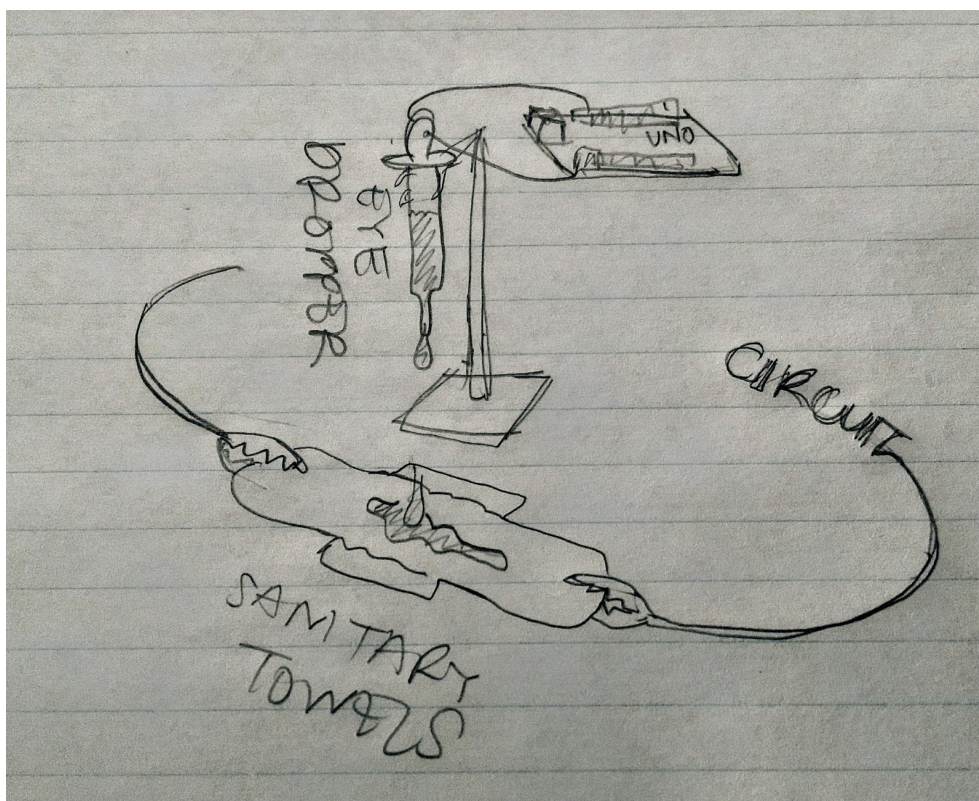 UNO
EYE
DROPPER
CIRCUIT
SANITARY
TOWELS